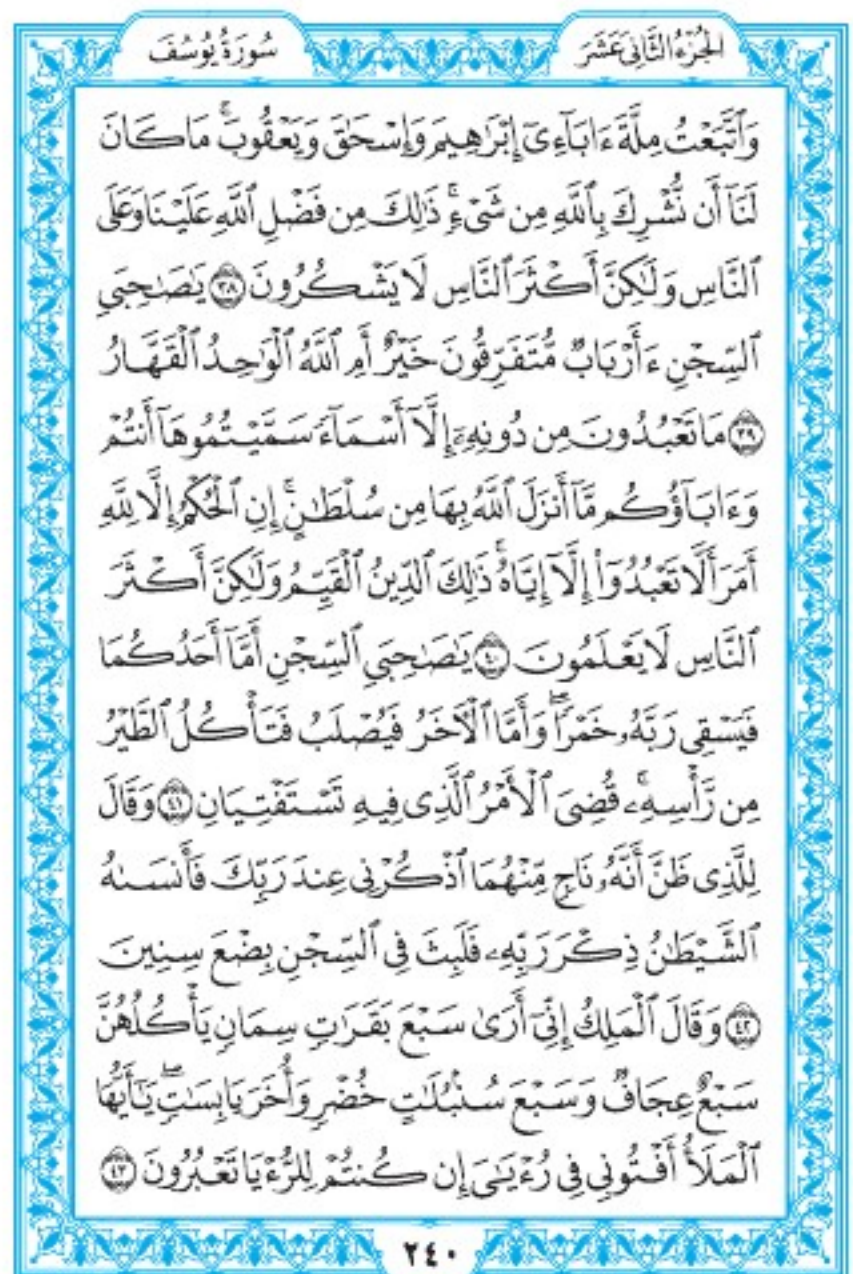 الجُزْءُ الثَّانِي عَشَرَ سُورَةُ يُوسُفَ
وَٱتَّبَعْتُ مِلَّةَ ءَابَآءِىٓ إِبْرَٰهِيمَ وَإِسْحَٰقَ وَيَعْقُوبَۚ مَا كَانَ
لَنَآ أَن نُّشْرِكَ بِٱللَّهِ مِن شَىْءٍۚ ذَٰلِكَ مِن فَضْلِ ٱللَّهِ عَلَيْنَا وَعَلَى
ٱلنَّاسِ وَلَٰكِنَّ أَكْثَرَ ٱلنَّاسِ لَا يَشْكُرُونَ ٣٨ يَٰصَٰحِبَىِ
ٱلسِّجْنِ ءَأَرْبَابٌ مُّتَفَرِّقُونَ خَيْرٌ أَمِ ٱللَّهُ ٱلْوَٰحِدُ ٱلْقَهَّارُ
٣٩ مَا تَعْبُدُونَ مِن دُونِهِۦٓ إِلَّآ أَسْمَآءً سَمَّيْتُمُوهَآ أَنتُمْ
وَءَابَآؤُكُم مَّآ أَنزَلَ ٱللَّهُ بِهَا مِن سُلْطَٰنٍۚ إِنِ ٱلْحُكْمُ إِلَّا لِلَّهِ
أَمَرَ أَلَّا تَعْبُدُوٓا۟ إِلَّآ إِيَّاهُۚ ذَٰلِكَ ٱلدِّينُ ٱلْقَيِّمُ وَلَٰكِنَّ أَكْثَرَ
ٱلنَّاسِ لَا يَعْلَمُونَ ٤٠ يَٰصَٰحِبَىِ ٱلسِّجْنِ أَمَّآ أَحَدُكُمَا
فَيَسْقِى رَبَّهُۥ خَمْرًاۖ وَأَمَّا ٱلْءَاخَرُ فَيُصْلَبُ فَتَأْكُلُ ٱلطَّيْرُ
مِن رَّأْسِهِۦۚ قُضِىَ ٱلْأَمْرُ ٱلَّذِى فِيهِ تَسْتَفْتِيَانِ ٤١ وَقَالَ
لِلَّذِى ظَنَّ أَنَّهُۥ نَاجٍ مِّنْهُمَا ٱذْكُرْنِى عِندَ رَبِّكَ فَأَنسَىٰهُ
ٱلشَّيْطَٰنُ ذِكْرَ رَبِّهِۦ فَلَبِثَ فِى ٱلسِّجْنِ بِضْعَ سِنِينَ
٤٢ وَقَالَ ٱلْمَلِكُ إِنِّىٓ أَرَىٰ سَبْعَ بَقَرَٰتٍ سِمَانٍ يَأْكُلُهُنَّ
سَبْعٌ عِجَافٌ وَسَبْعَ سُنۢبُلَٰتٍ خُضْرٍ وَأُخَرَ يَابِسَٰتٍۖ يَٰٓأَيُّهَا
ٱلْمَلَأُ أَفْتُونِى فِى رُءْيَٰىَ إِن كُنتُمْ لِلرُّءْيَا تَعْبُرُونَ ٤٣
٢٤٠